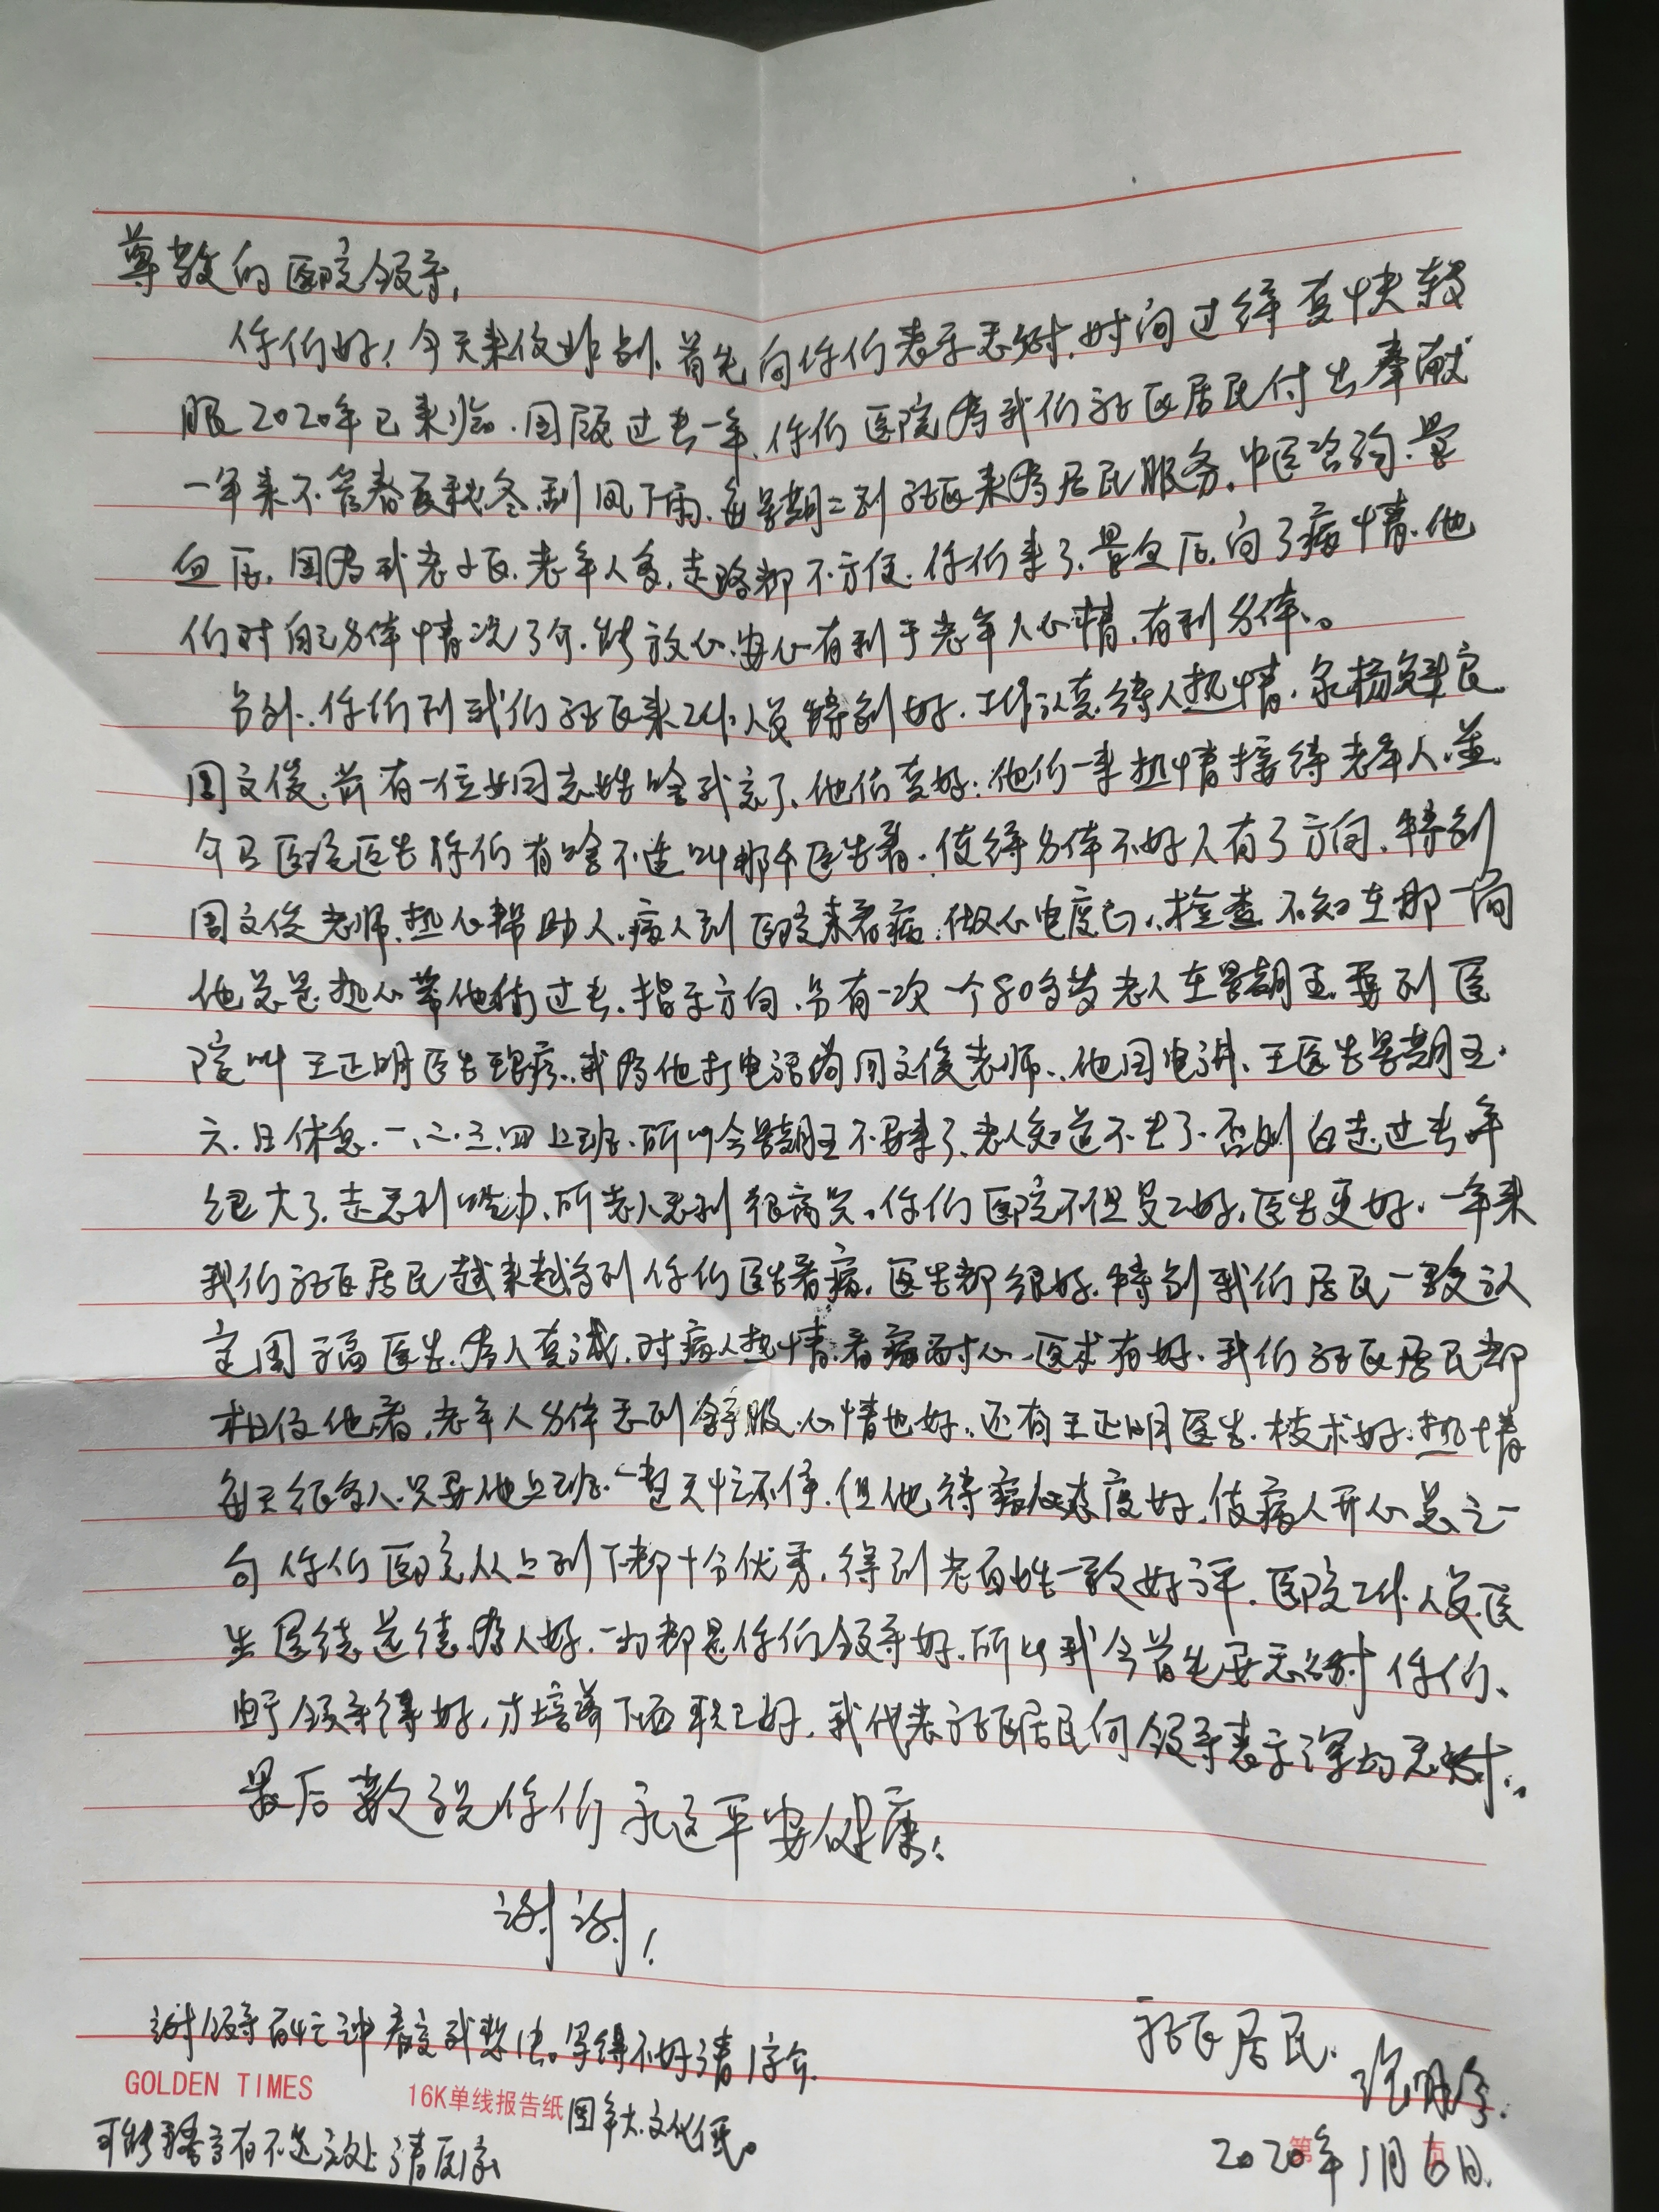 尊敬的医院领导,
你们好!今天来信非别、首先向你们表示感谢.时间过得真快转
眼2020年已来临.回顾过去一年、你们医院为我们社区居民付出奉献
一年来不管春夏秋冬.刮风下雨.每星期二到社区来为居民服务.中医咨询.量
血压.因为我老小区.老年人多.走路都不方便.你们来了.量血压.问了病情.他
们对自己身体情况了介.能放心.安心有利于老年人心情.有利身体。
另外.你们到我们社区来工作人员特别好.工作认真.待人热情.象杨
周文俊.前有一位女同志姓啥我忘了、他们真好:他们一来热情接待老年人.并
介召医院医生你们有啥不适叫那个医生看.使得身体不好人有了方向.特别
周文俊老师.热心帮助人.病人到医院来看病.做心电度.检查不知在那一间
他总是热心带他们过去.指示方向.另有一次一个80多岁老人在星期五要到医
院叫王正明医生看病.我为他打电话问周文俊老师.他回电讲、王医生星期五.
六.日休息.一、二.三.四上班.所以今星期五不要来了、老人知道不去了.否则白走过去年
纪大了.走感到吃力、所老人感到很高兴。你们医院不但员工好.医生更好.一年来
我们社区居民越来越多到你们医生看病.医生都很好.特别我们居民一致认
定周福医生.为人真诚.对病人热情.看病耐心.医求有好.我们社区居民都
相信他看.老年人身体感到舒服.心情也好.还有王正明医生.技求好.热情
每天很多人.只要他上班.一整天忙不停.但他待病人态度好.使病人开心总之一
句你们医院从上到下都十分优秀.得到老百姓一致好评.医院工作人员医
生医德道德.为人好.一切都是你们领导好.所以我今首先要感谢你们、
由于领导得好.才培养下面职工好.我代表社区居民向领导表示深的感谢.
最后敬祝你们永远平安健康!
谢谢!
谢领导百忙之中看度我来信.写得不好请原介.
社区居民.
GOLDEN TIMES
16K单线报告纸
因年大.文化低。
可能语言有不足之处请原谅
2020年1月6日.
第 页